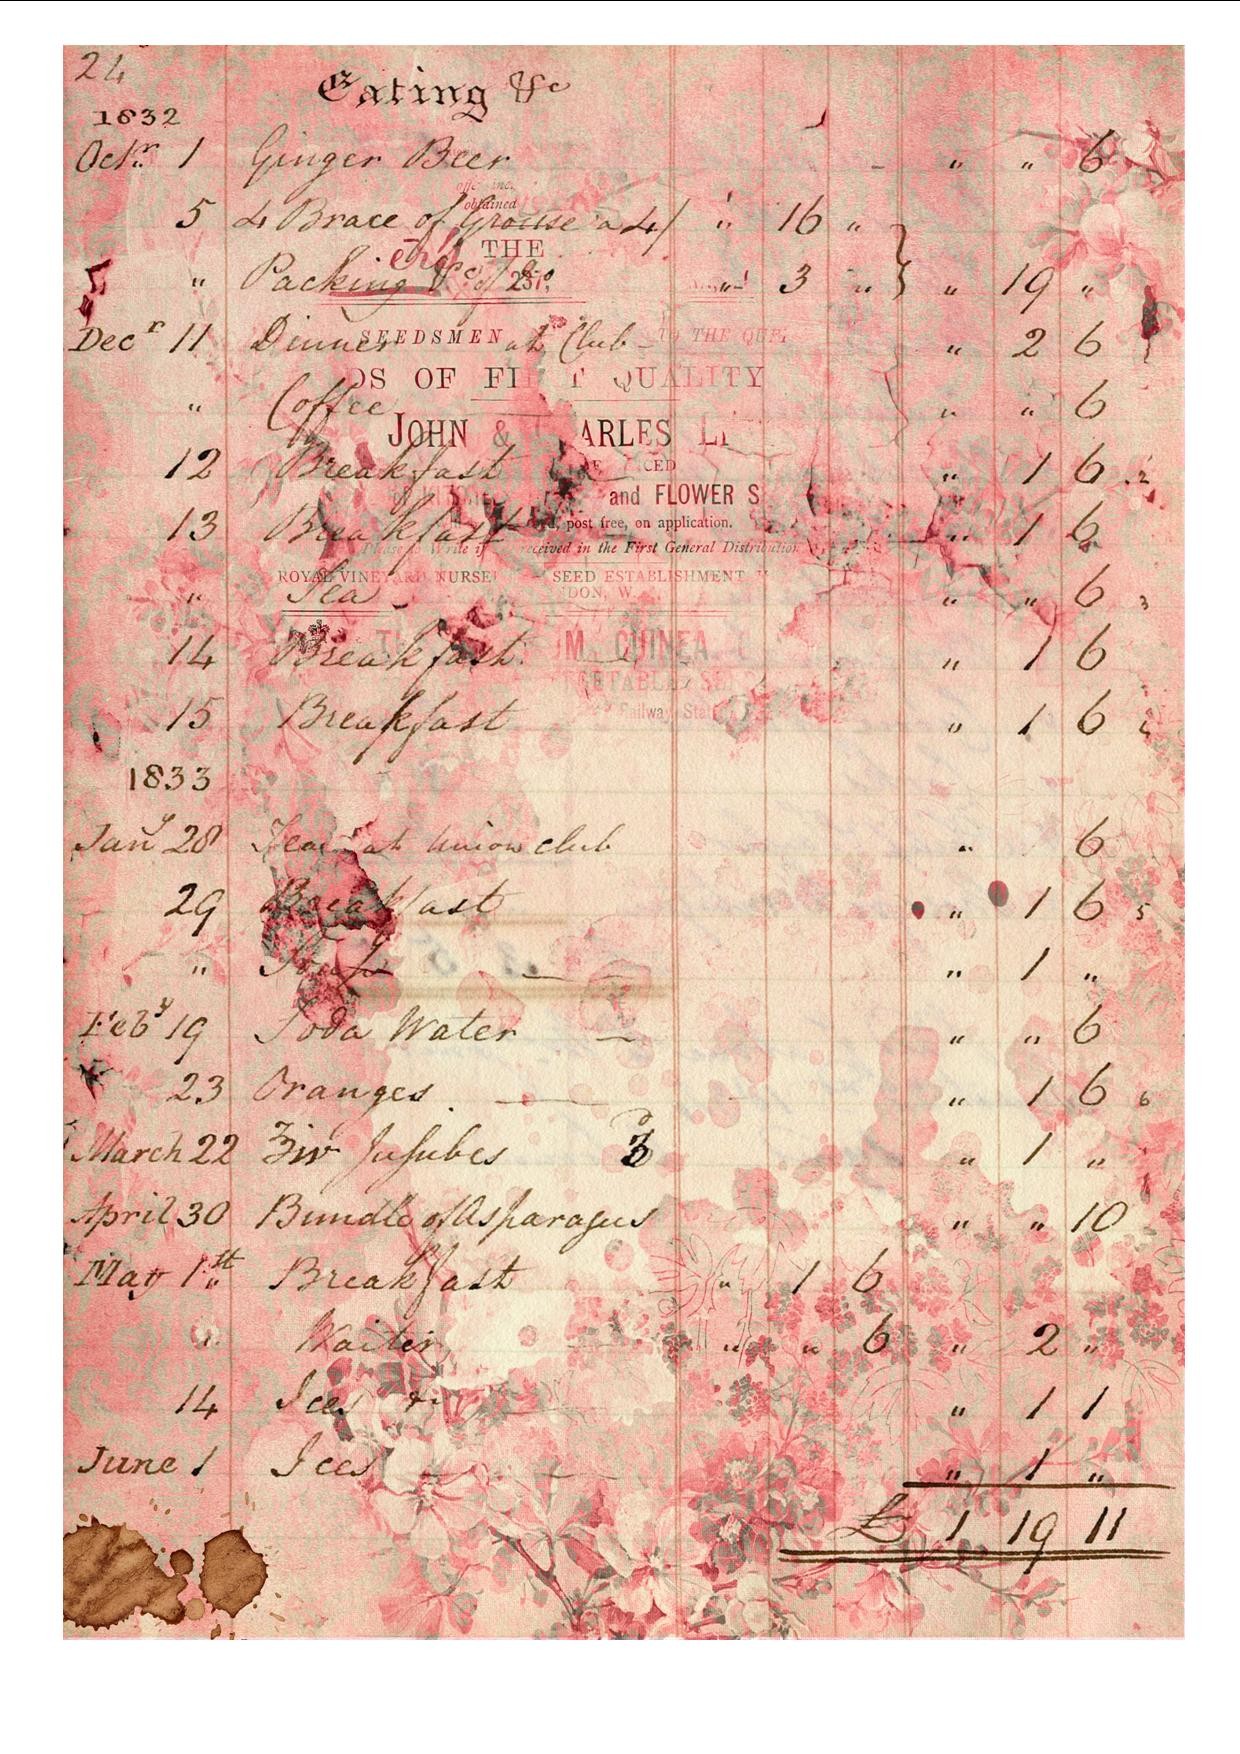 24
Eating &c
1832
Octr. 1 Ginger Beer - " " 6
5 4 Brace of Grouse a 4/ " 16 "
offe inc.
obtained
THE
" Packing &c of Do " 3 " } " 19 "
237,
Decr 11 Dinner at Club " 2 6
SEEDSMEN TO THE QUE
DS OF FI T QUALITY
" Coffee " " 6
JOHN & ARLES L
12 Breakfast " 1 6 2
CED
and FLOWER S
13 Breakfast " 1 6
post free, on application.
Please to Write if received in the First General Distribution
ROYAL VINEYARD NURSE SEED ESTABLISHMENT
" Tea " " 6 3
DON, W.
14 Breakfast " 1 6
M. GUINEA.
ETABLE SE
15 Breakfast " 1 6 4
Railway Stat
1833
Jany 28 Tea at Union club " 6
29 Breakfast " 1 6 5
" " 1 "
Feby 19 Soda Water " " 6
23 Oranges " 1 6 6
March 22 Jujubes " 1 "
April 30 Bundle of Asparagus " " 10
May 1st Breakfast " 1 6
" Waiter " " 6 " 2 "
14 Ices " 1 1
June 1 Ices " 1 "
£ 1 19 11